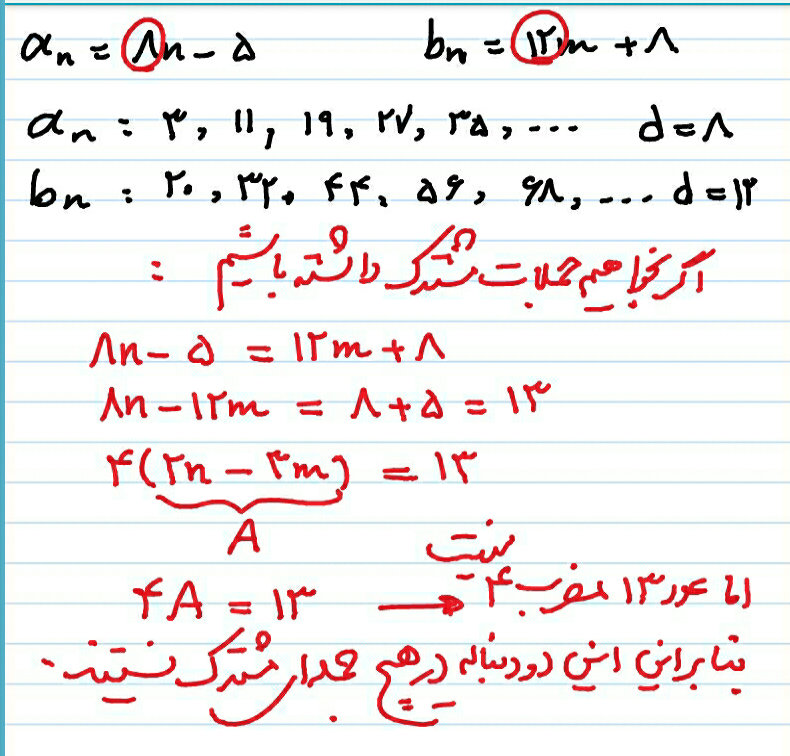 aₙ = ۸n - ۵ bₙ = ۱۲m + ۸
aₙ : ۳, ۱۱, ۱۹, ۲۷, ۳۵, ... d = ۸
bₙ : ۲۰, ۳۲, ۴۴, ۵۶, ۶۸, ... d = ۱۲
اگر بخواهیم جملات مشترک داشته باشیم :
۸n - ۵ = ۱۲m + ۸
۸n - ۱۲m = ۸ + ۵ = ۱۳
۴(۲n - ۳m) = ۱۳
A
۴A = ۱۳ → اما عدد ۱۳ مضرب ۴ نیست
بنابراین این دو دنباله در هیچ جمله‌ای مشترک نیستند.